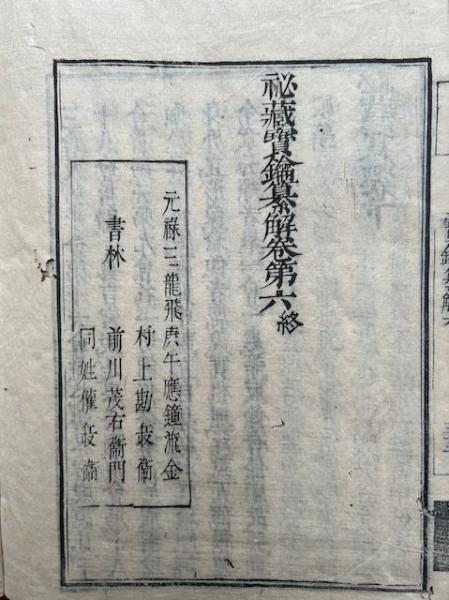 祕藏寶鑰纂解卷第六終
元祿三龍飛庚午應鐘流金
村上勘兵衛
書林
前川茂右衞門
同姓權兵衞